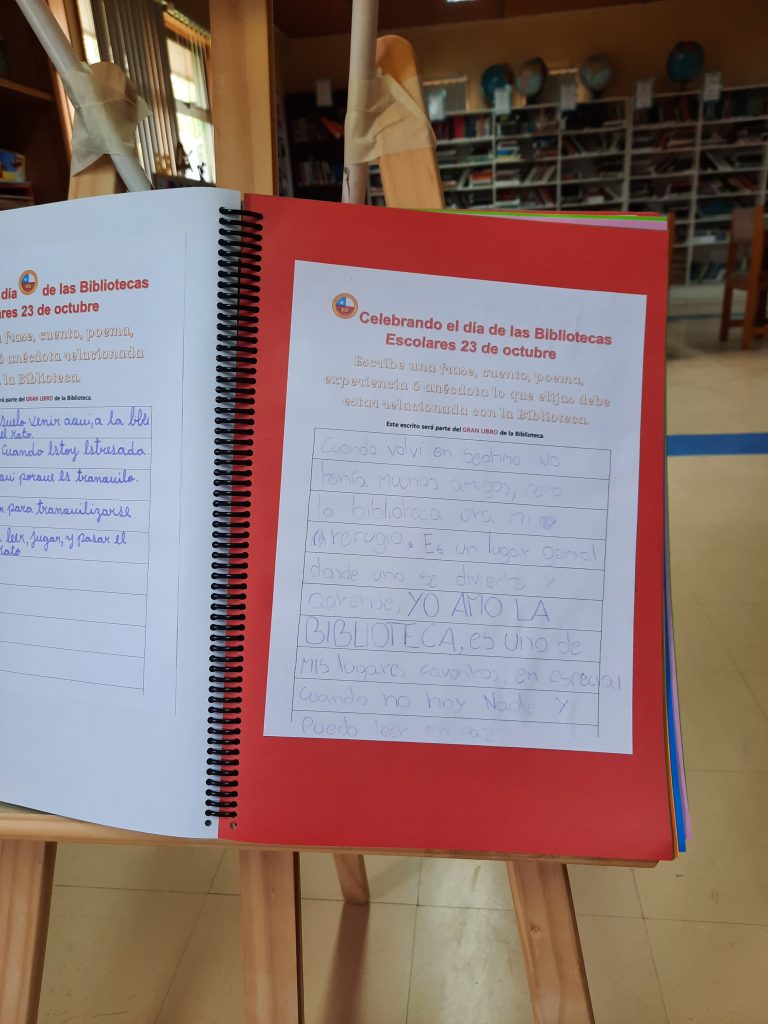 día de las Bibliotecas
ares 23 de octubre
a frase, cuento, poema,
ó anécdota relacionada
la Biblioteca.
rá parte del GRAN LIBRO de la Biblioteca.
suelo venir aqui, a la bibli
el rato.
Cuando Estoy Estresada.
qui porque es tranquilo.
para tranquilizarse
leer, jugar, y pasar el
rato
Celebrando el día de las Bibliotecas
Escolares 23 de octubre
Escribe una frase, cuento, poema,
experiencia ó anécdota lo que elijas debe
estar relacionada con la Biblioteca.
Este escrito será parte del GRAN LIBRO de la Biblioteca.
Cuando volví en septimo no
tenía muchos amigos, pero
la biblioteca era mi
refugio. Es un lugar genial
donde uno se divierte y
aprende, YO AMO LA
BIBLIOTECA, es uno de
mis lugares favoritos, en especial
cuando no hay Nadie y
puedo leer en paz